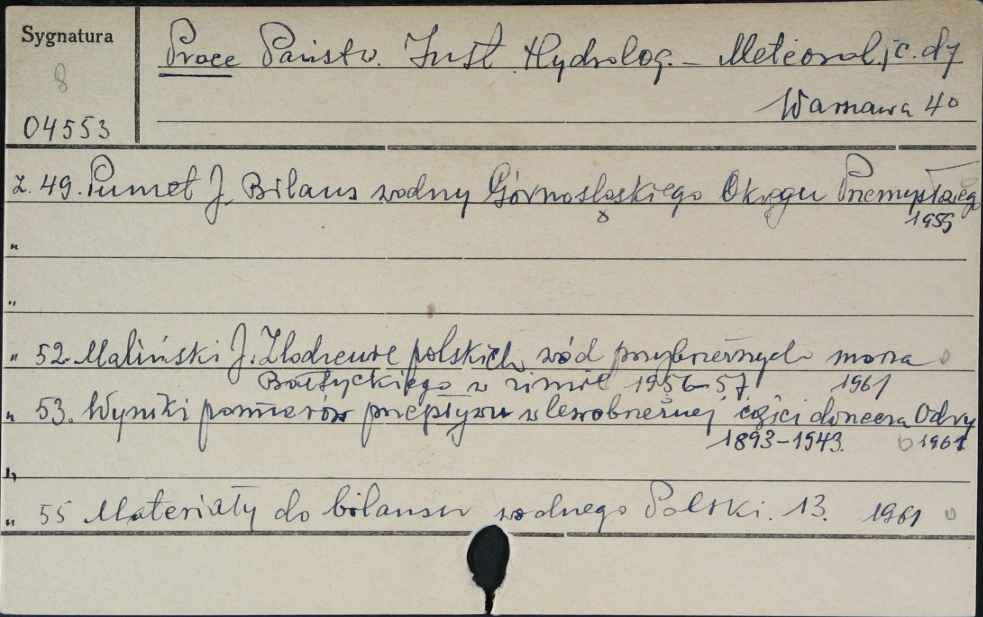 Sygnatura
8
04553
Prace Państw. Inst. Hydrolog. - Meteorol. j c. d 7
Warszawa 40
z. 49. J. Bilans wodny Górnośląskiego Okręgu Przemysłowego
x
1955
"
"
" 52. Maliński J. Zlodzenie polskich wód przybrzeżnych morza
Bałtyckiego w zimie 1956-57 1961
" 53. Wyniki pomiarów przepływu w lewobrzeżnej części dorzecza Odry
1893-1943. 1961
"
" 55 Materiały do bilansu wodnego Polski. 13. 1961